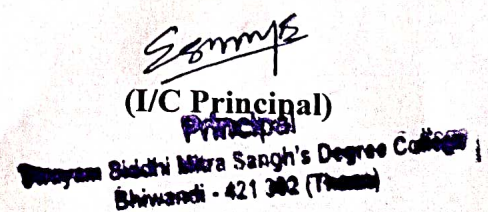 (I/C Principal)
Principal
Swayam Siddhi Mitra Sangh's Degree College
Bhiwandi - 421 302 (Thane)